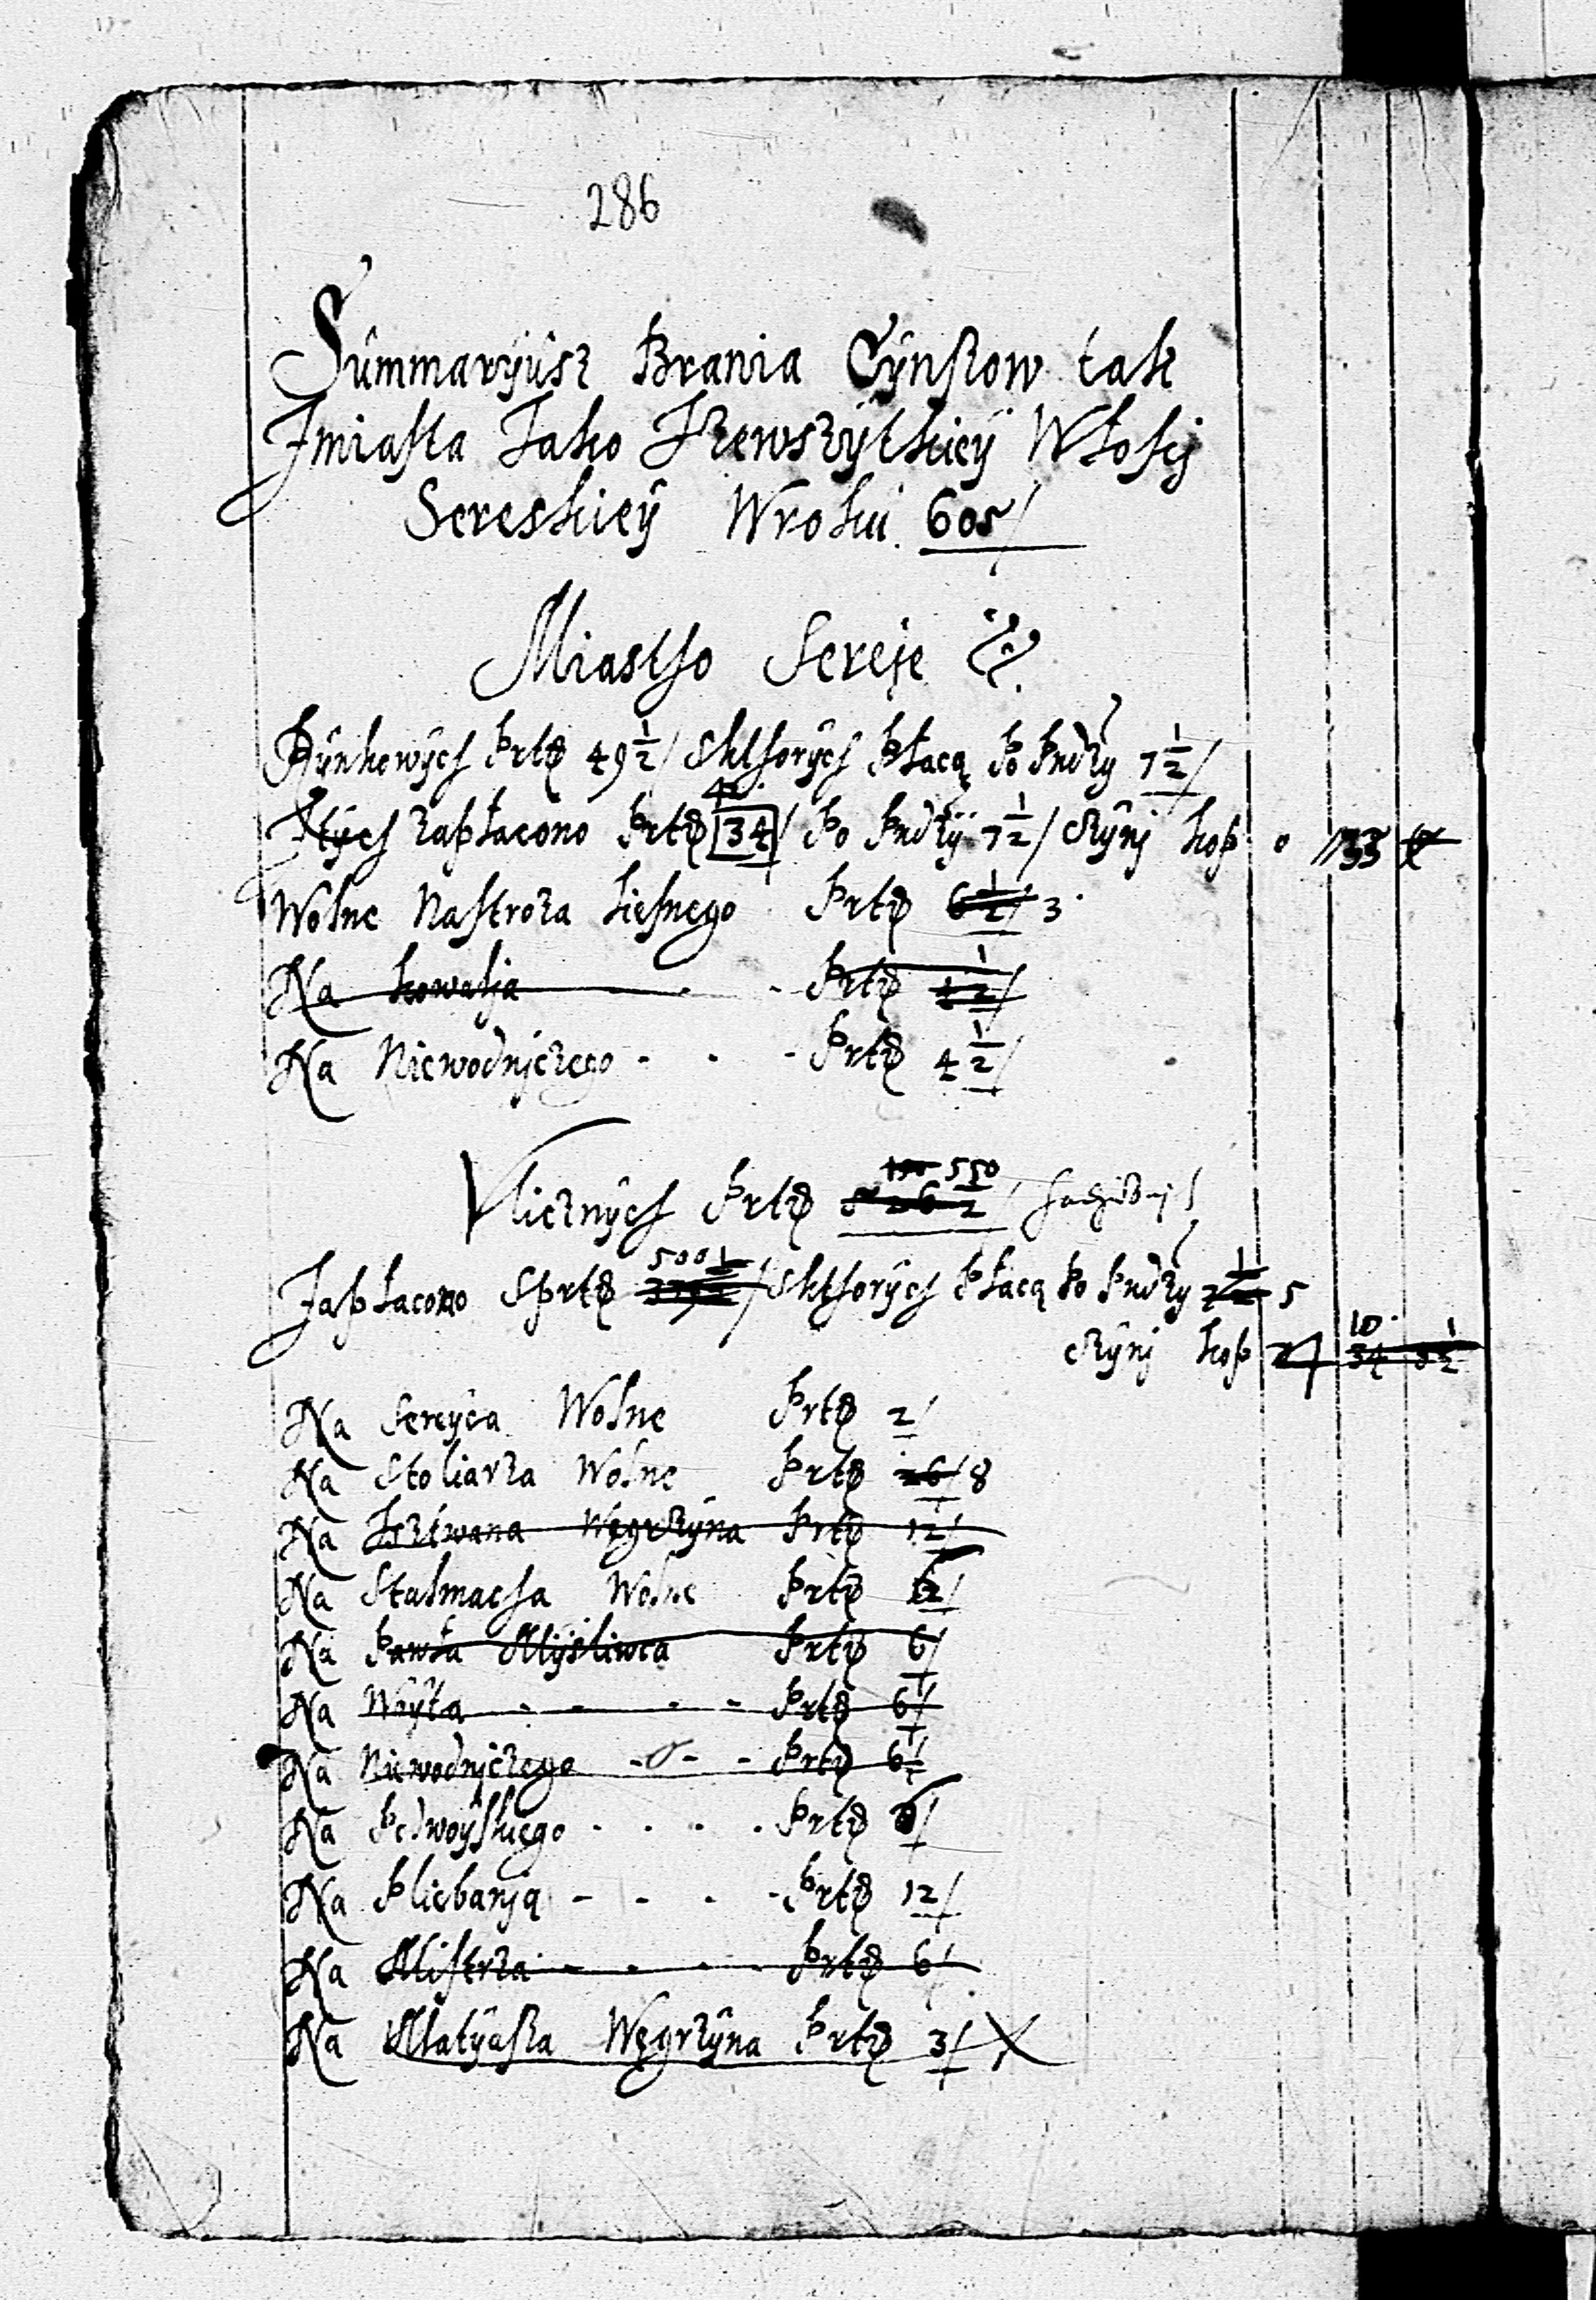 286
Summaryusz Brania Cynszow tak
Zmiasta Jako Yzewszytkiey Włosci
Sereskiey Wroku 605
Miastho Sereje
Rynkowych Prtẹ 49 1/2 / Skthorych Płacą Po Pndzy 7 1/2 /
42
Ztych zapłacono Prtẹ 34 / Po Pndzy 7 1/2 / Czyni kop 0 33
Wolne Nastroza Liesnego Prtẹ 6 1/2 / 3
Na kowalia Prtẹ 4 1/2 /
Na Niewodniczego - - - Prtẹ 4 1/2 /
550
Vlicznych Prtẹ
500 1/2
Zapłacono Sprtẹ / Skthorych Płacą Po Pndzy 5
10
Czyni kop 34
Na Sereyca Wolne Prtẹ 2 /
Na Stoliarza Wolne Prtẹ 26 / 8
Na Isztwana Węgrzyna Prtẹ 12 /
Na Stalmacha Wolne Prtẹ
Na Pawła Mysliwca Prtẹ 6 /
Na Woyta - - - - Prtẹ 6 /
Na Niewodniczego - - - Prtẹ 6 /
Na Podwoyskiego - - - - Prtẹ
Na Pliebanią - - - - Prtẹ 12 /
Na Mistrza - - - - Prtẹ 6 /
Na Matyasza Węgrzyna Prtẹ 3 / X